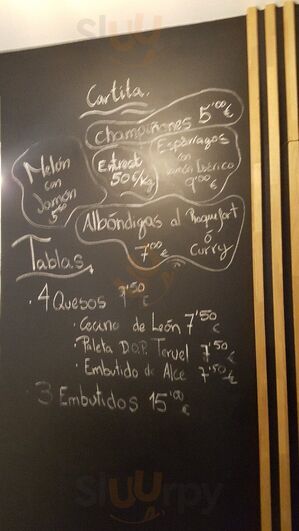 Sluurpy
Cartita.
Champiñones 5'00 €
Melón
con
Jamón
5'50
Entrecot
50 €/kg
Espárragos
con
Jamón Ibérico
9'00 €
Albóndigas al Roquefort
ó
Curry
7'00 €
Tablas
· 4 Quesos 7'50 €
· Cecina de León 7'50 €
Paleta D.O.P. Teruel 7'50 €
· Embutido de 7'50 €
· 3 Embutidos 15'00 €
sluurpy